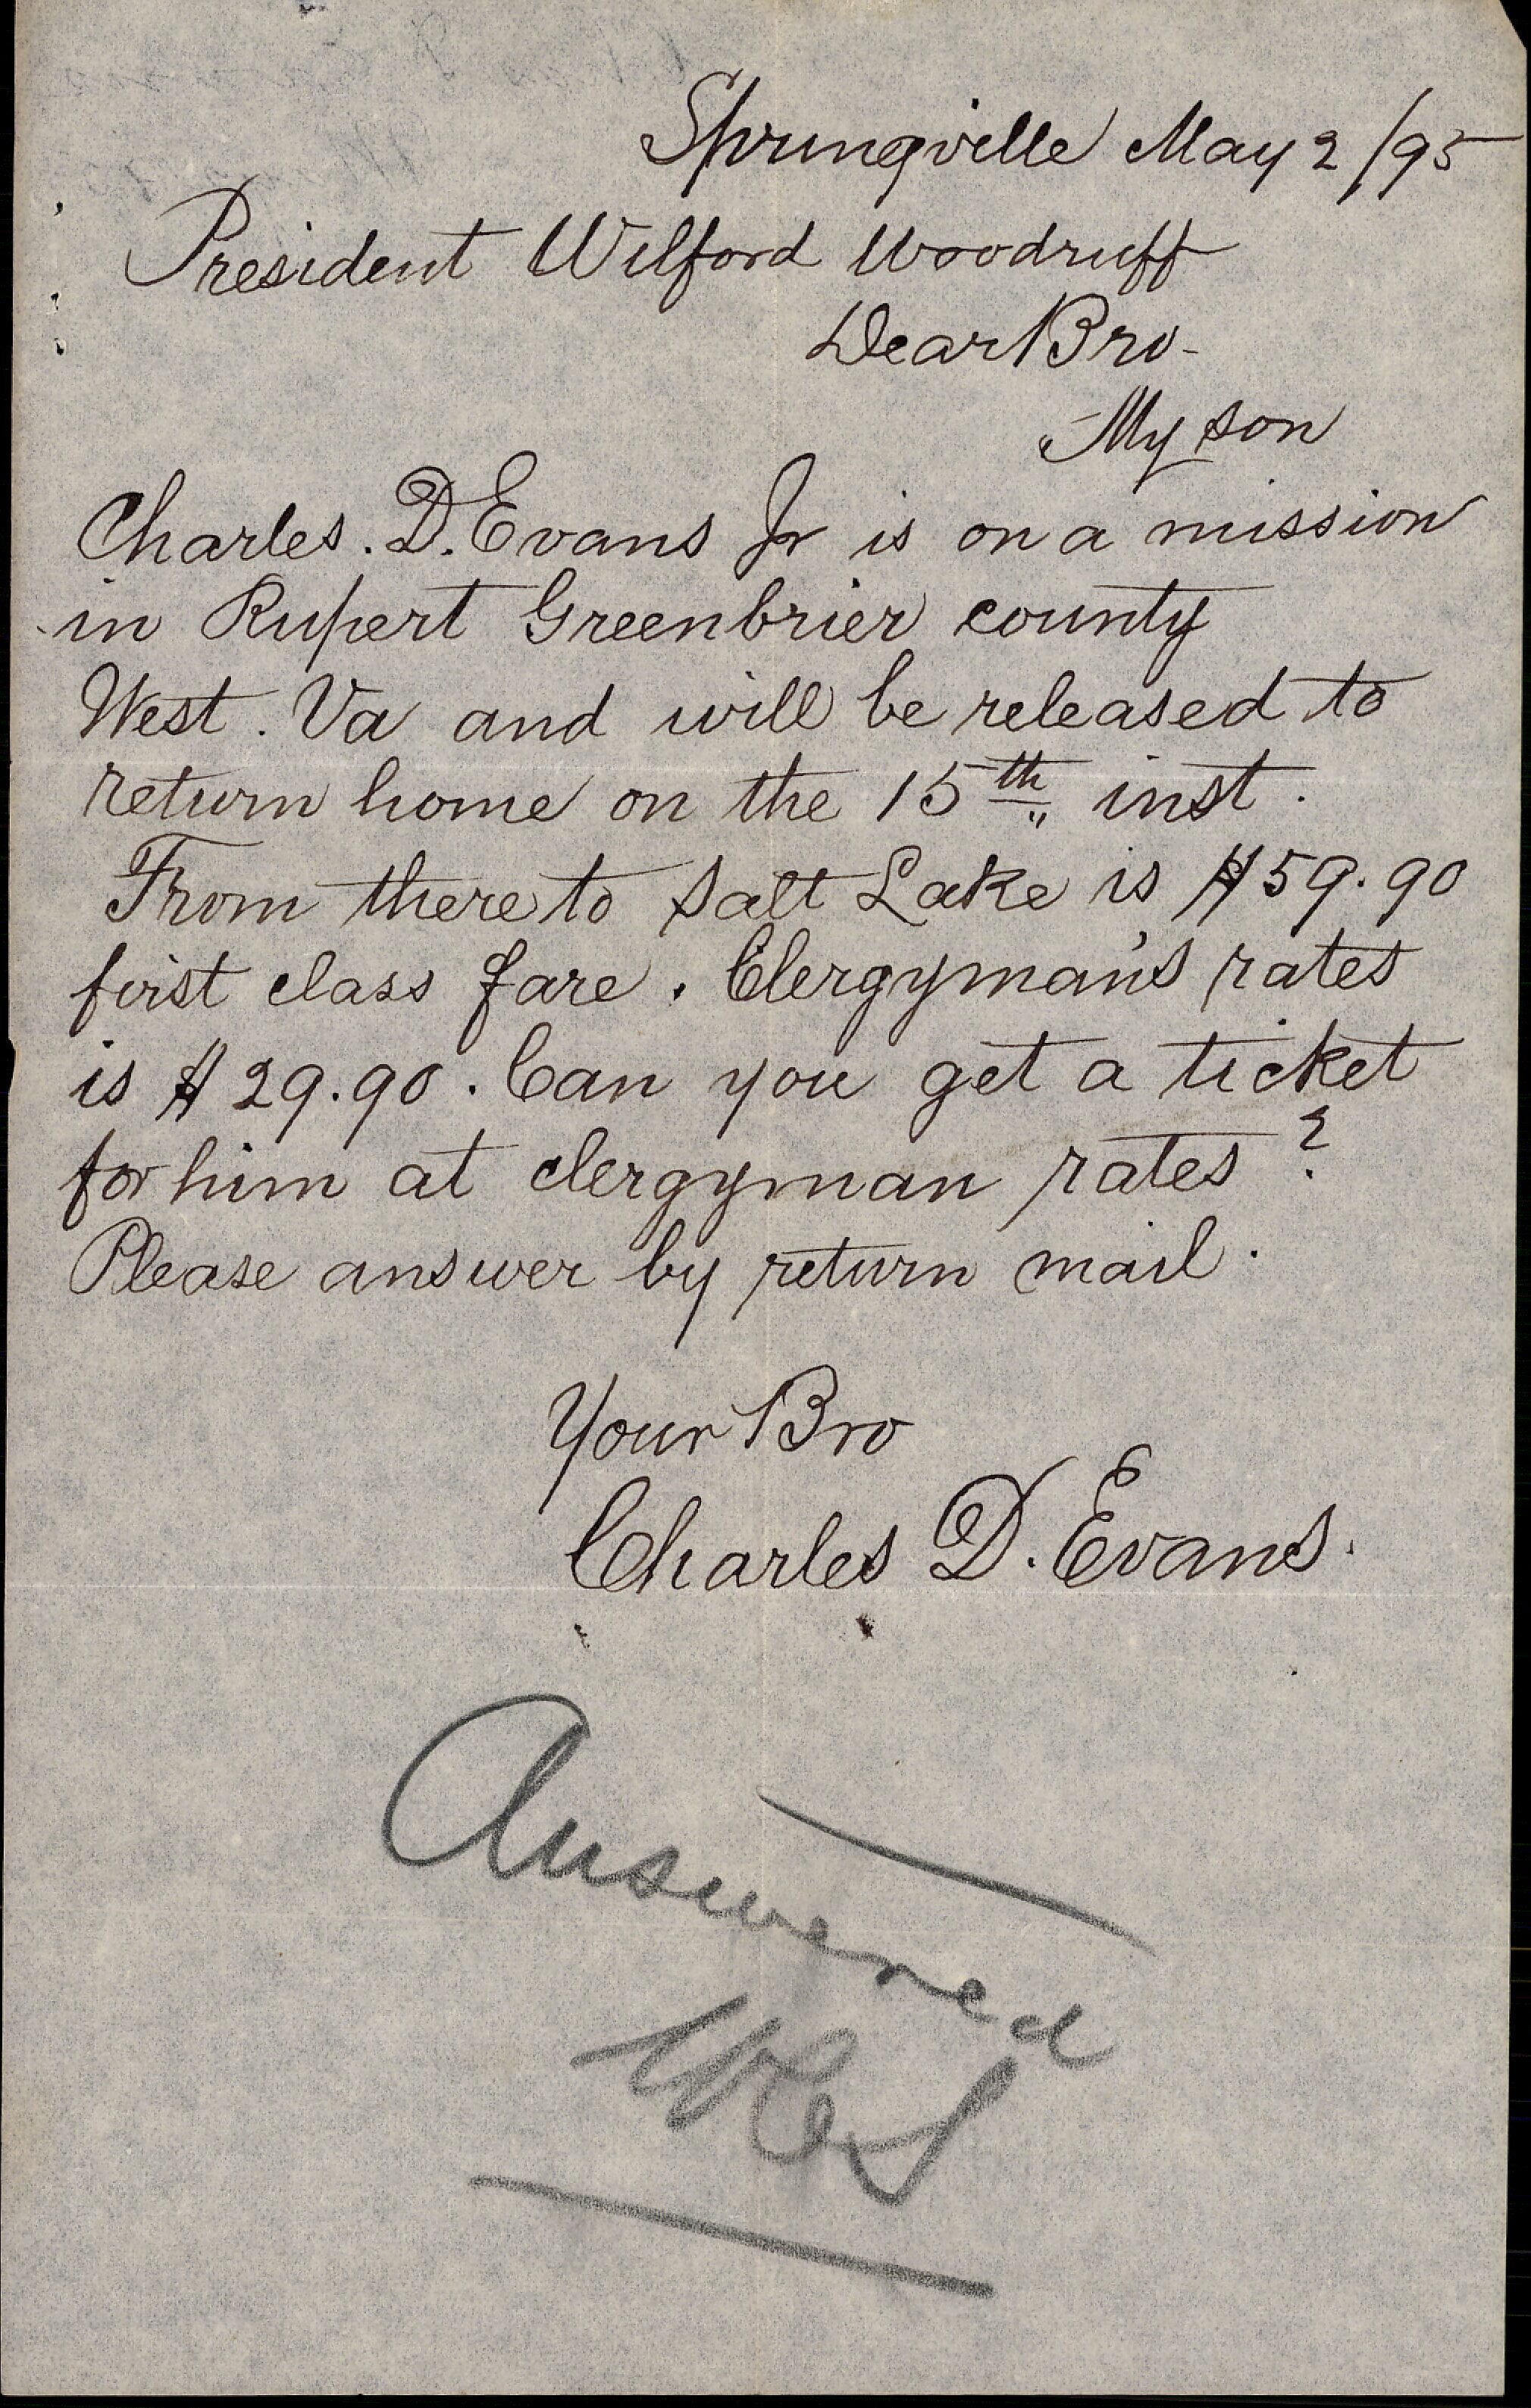 Springville May 2/95
President Wilford Woodruff
Dear Bro-
My son
Charles. D. Evans Jr is on a mission
in Rupert Greenbrier county
West. Va and will be released to
return home on the 15th inst.
From there to Salt Lake is $59.90
first class fare. Clergyman's rates
is $29.90. Can you get a ticket
for him at clergyman rates?
Please answer by return mail.
Your Bro
Charles D. Evans.
Answered